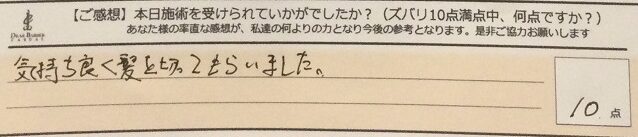 【ご感想】本日施術を受けられていかがでしたか？（ズバリ10点満点中、何点ですか？）
あなた様の率直な感想が、私達の何よりの力となり今後の参考となります。是非ご協力お願いします
気持ち良く髪を切ってもらいました。
10 点